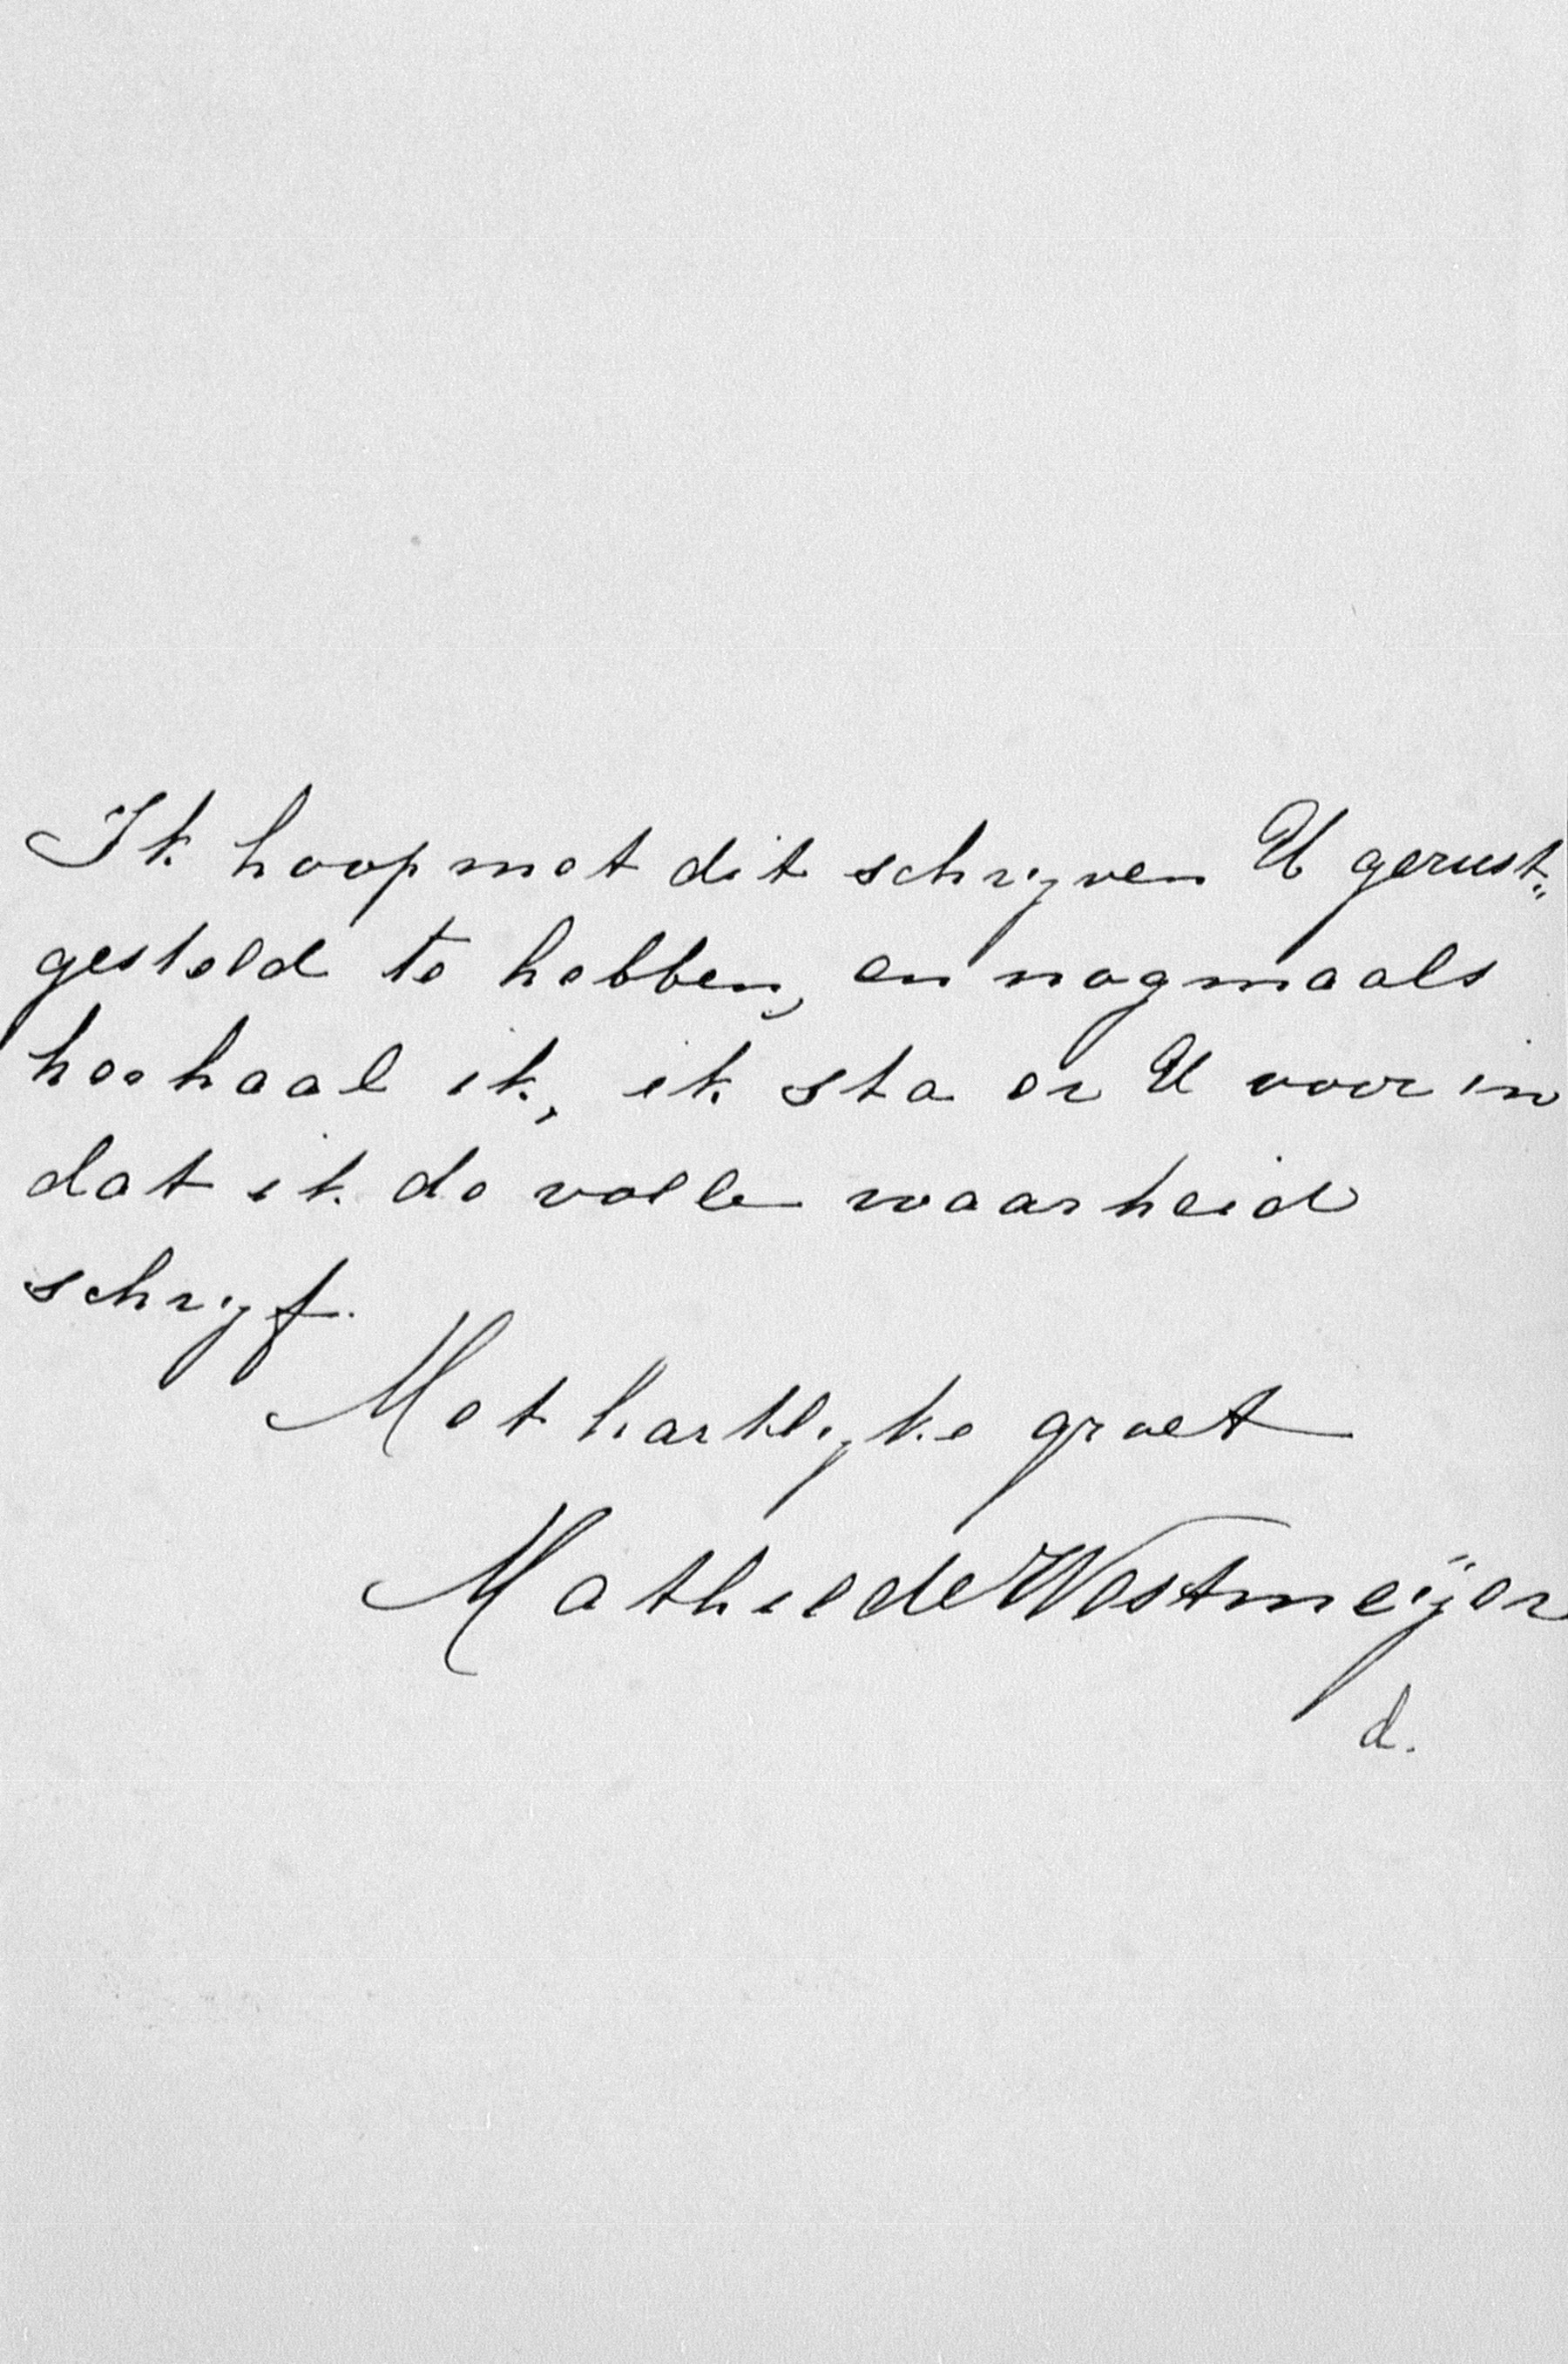 Ik hoop met dit schrijven U gerust„
gesteld te hebben, en nogmaals
herhaal ik, ik sta er U voor in
dat ik de volle waarheid
schrijf.
Met hartelijke groet
Mathilde Westmeijer
d.